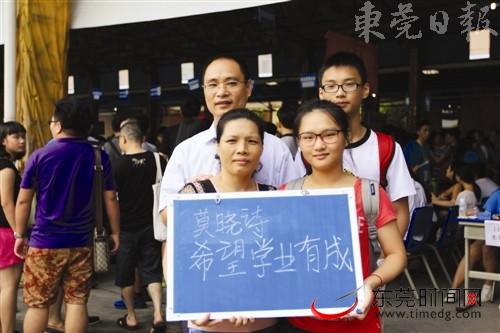 東莞日報
莫晓诗
希望学业有成
东莞时间网
www.timedg.com